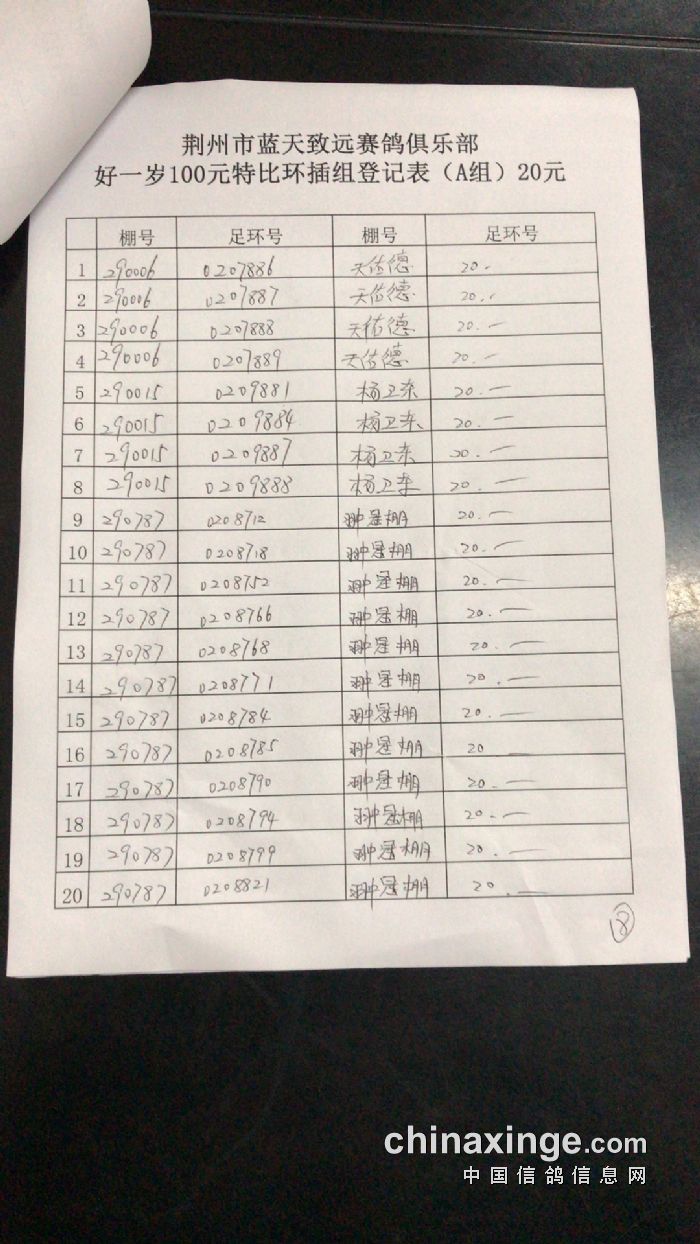 荆州市蓝天致远赛鸽俱乐部
好一岁100元特比环插组登记表（A组）20元
棚号 足环号 棚号 足环号
1 290006 0207886 天佑德 20.-
2 290006 0207887 天佑德 20.-
3 290006 0207888 天佑德 20.-
4 290006 0207889 天佑德 20.-
5 290015 0209881 杨卫东 20.-
6 290015 0209884 杨卫东 20.-
7 290015 0209887 杨卫东 20.-
8 290015 0209888 杨卫东 20.-
9 290787 0208712 翀冠棚 20.-
10 290787 0208718 翀冠棚 20.-
11 290787 0208752 翀冠棚 20.-
12 290787 0208766 翀冠棚 20.-
13 290787 0208768 翀冠棚 20.-
14 290787 0208771 翀冠棚 20.-
15 290787 0208784 翀冠棚 20.-
16 290787 0208785 翀冠棚 20 -
17 290787 0208790 翀冠棚 20.-
18 290787 0208794 翀冠棚 20.-
19 290787 0208799 翀冠棚 20.-
20 290787 0208821 翀冠棚 20.-
18
chinaxinge.com
中国信鸽信息网